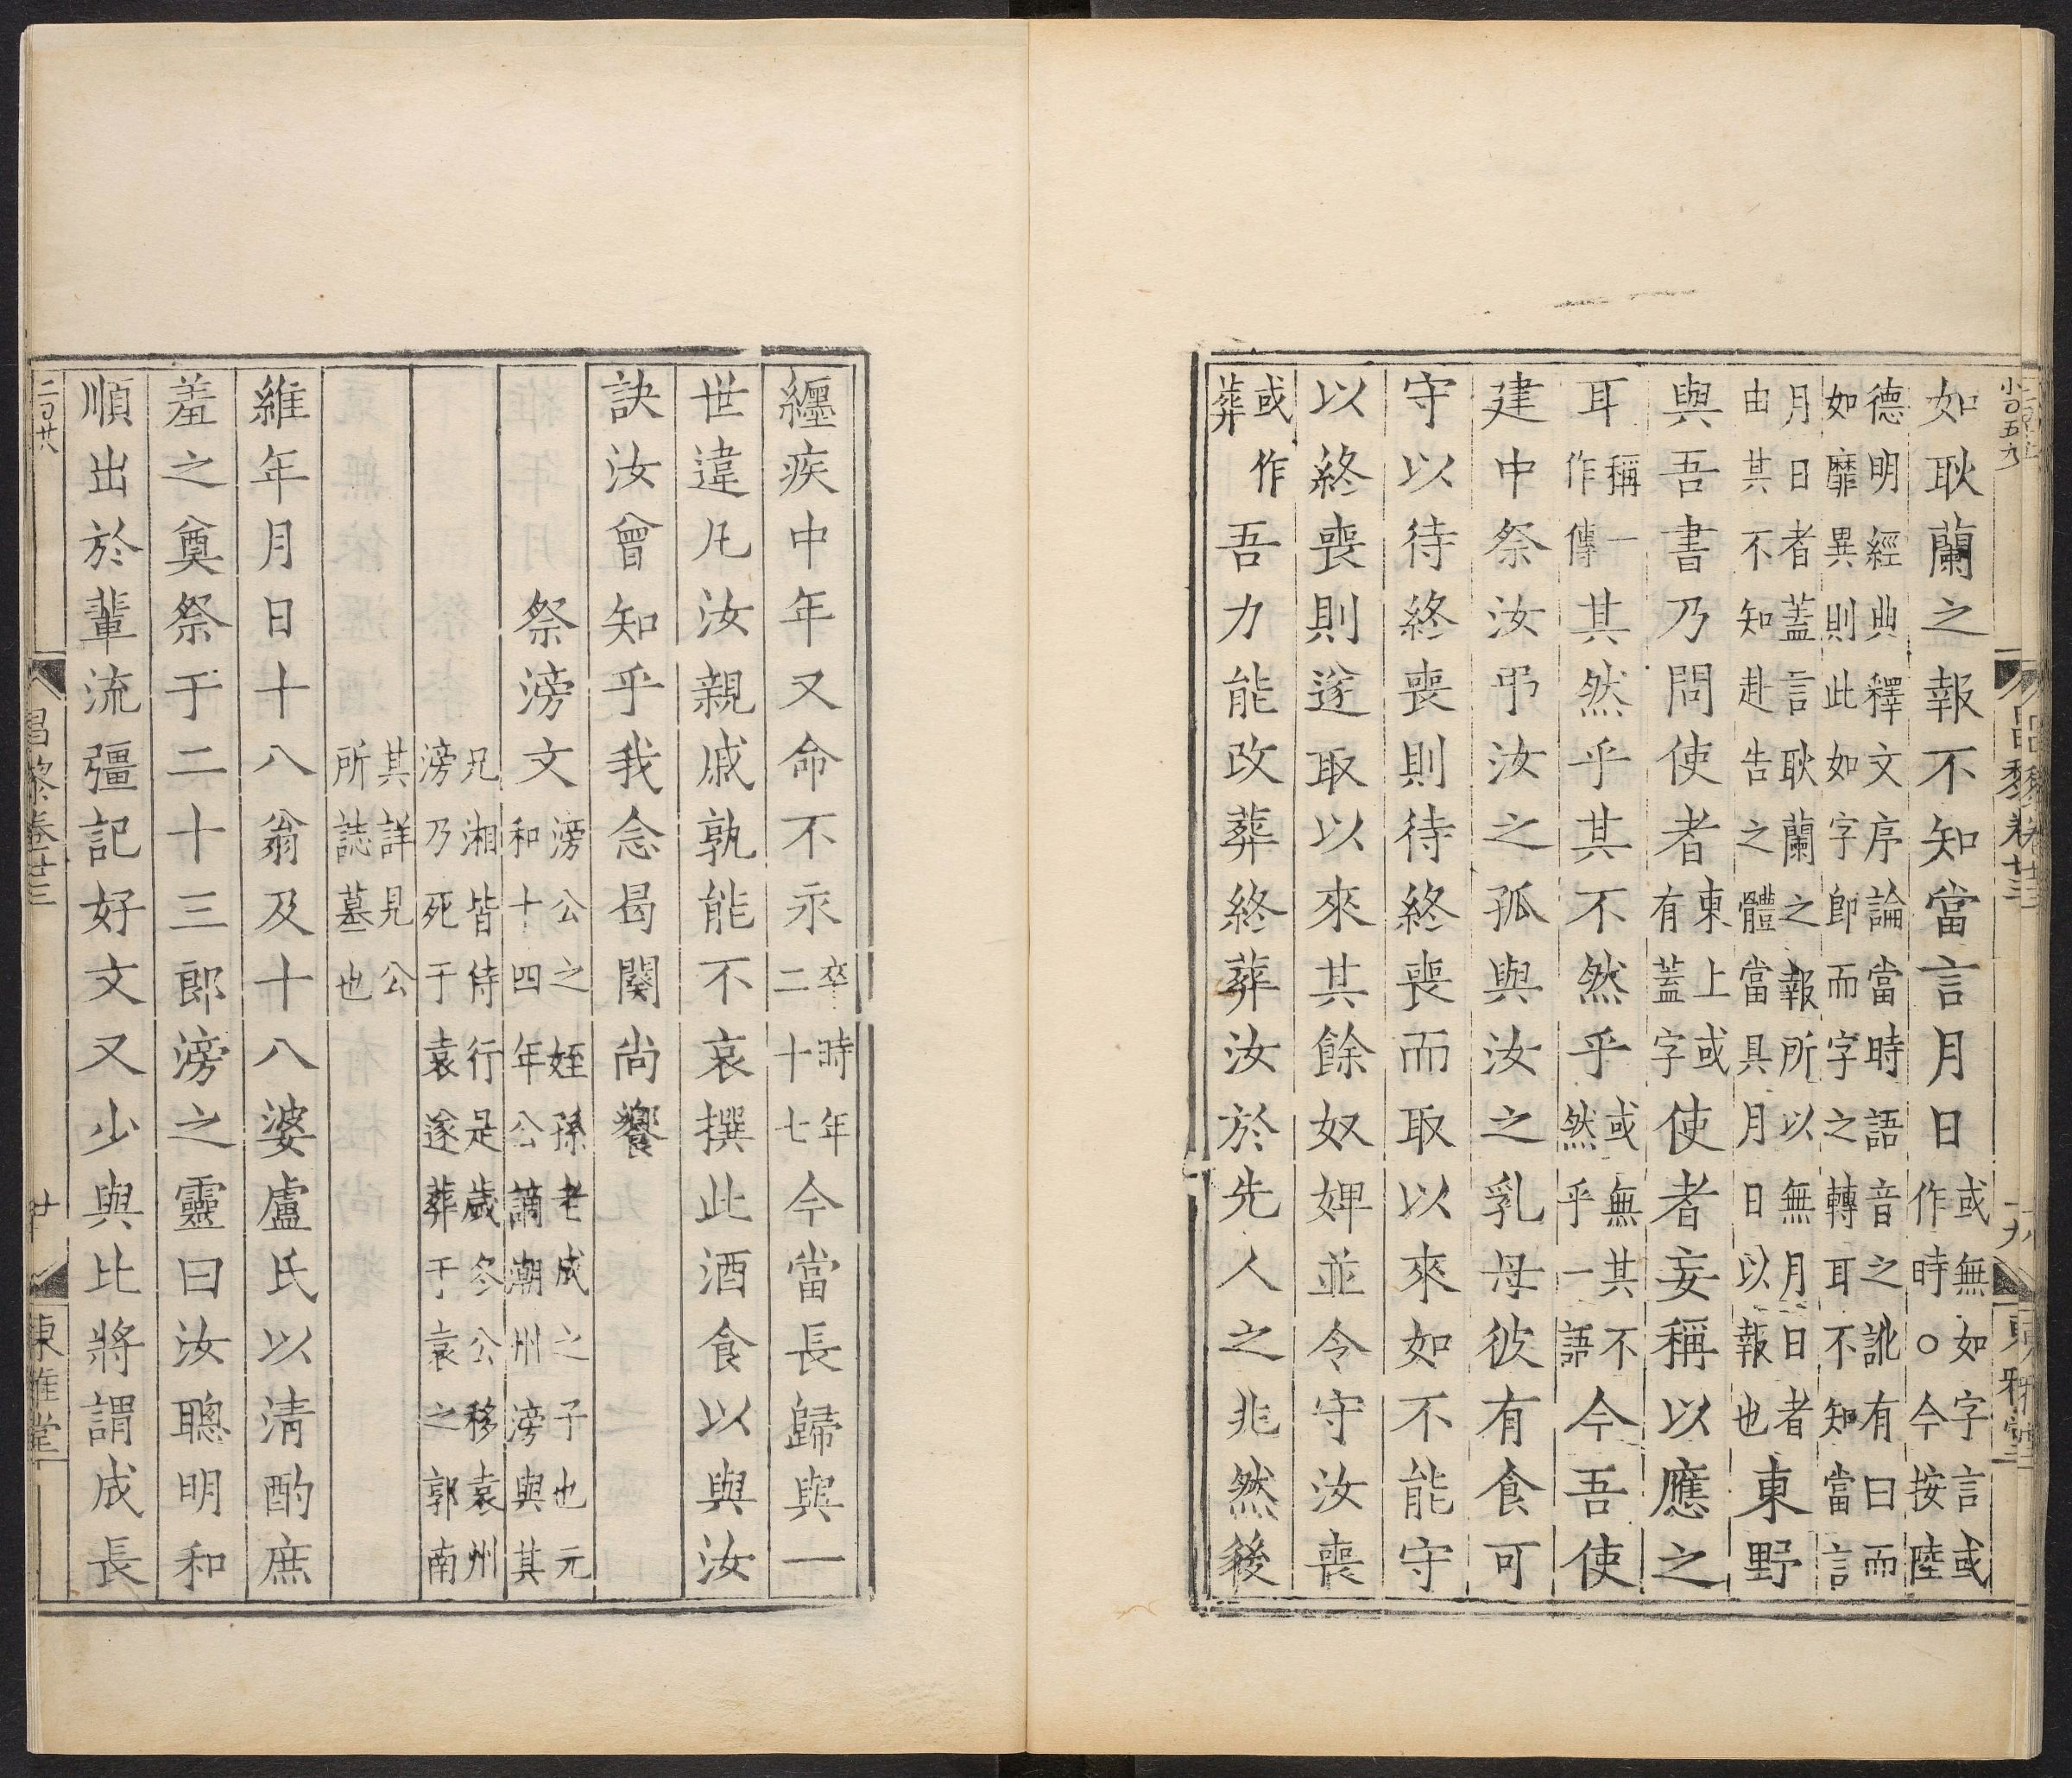 如耿蘭之報不知當言月日或無如字言或作時○今按陸
德明經典釋文序論當時語音之訛有曰而如靡異則此如字即而字之轉耳不知當言
月日者蓋言耿蘭之報所以無月日者由其不知赴告之體當具月日以報也東野
與吾書乃問使者東上或有蓋字使者妄稱以應之
耳稱一作傳其然乎其不然乎或無其不然乎一語今吾使
建中祭汝弔汝之孤與汝之乳母彼有食可
守以待終喪則待終喪而取以來如不能守
以終喪則遂取以來其餘奴婢並令守汝喪
或作葬吾力能改葬終葬汝於先人之兆然後
纏疾中年又命不永卒時年二十七今當長歸與一
世違凡汝親戚孰能不哀撰此酒食以與汝
訣汝曾知乎我念曷闋尚饗
祭滂文滂公之姪孫老成之子也元和十四年公謫潮州滂與其
兄湘皆侍行是歲冬公移袁州滂乃死于袁遂葬于袁之郭南
其詳見公所誌墓也
維年月日十八翁及十八婆盧氏以清酌庶
羞之奠祭于二十三郎滂之靈曰汝聰明和
順出於輩流彊記好文又少與比將謂成長
二百廿
昌黎卷廿三
廿
東雅堂